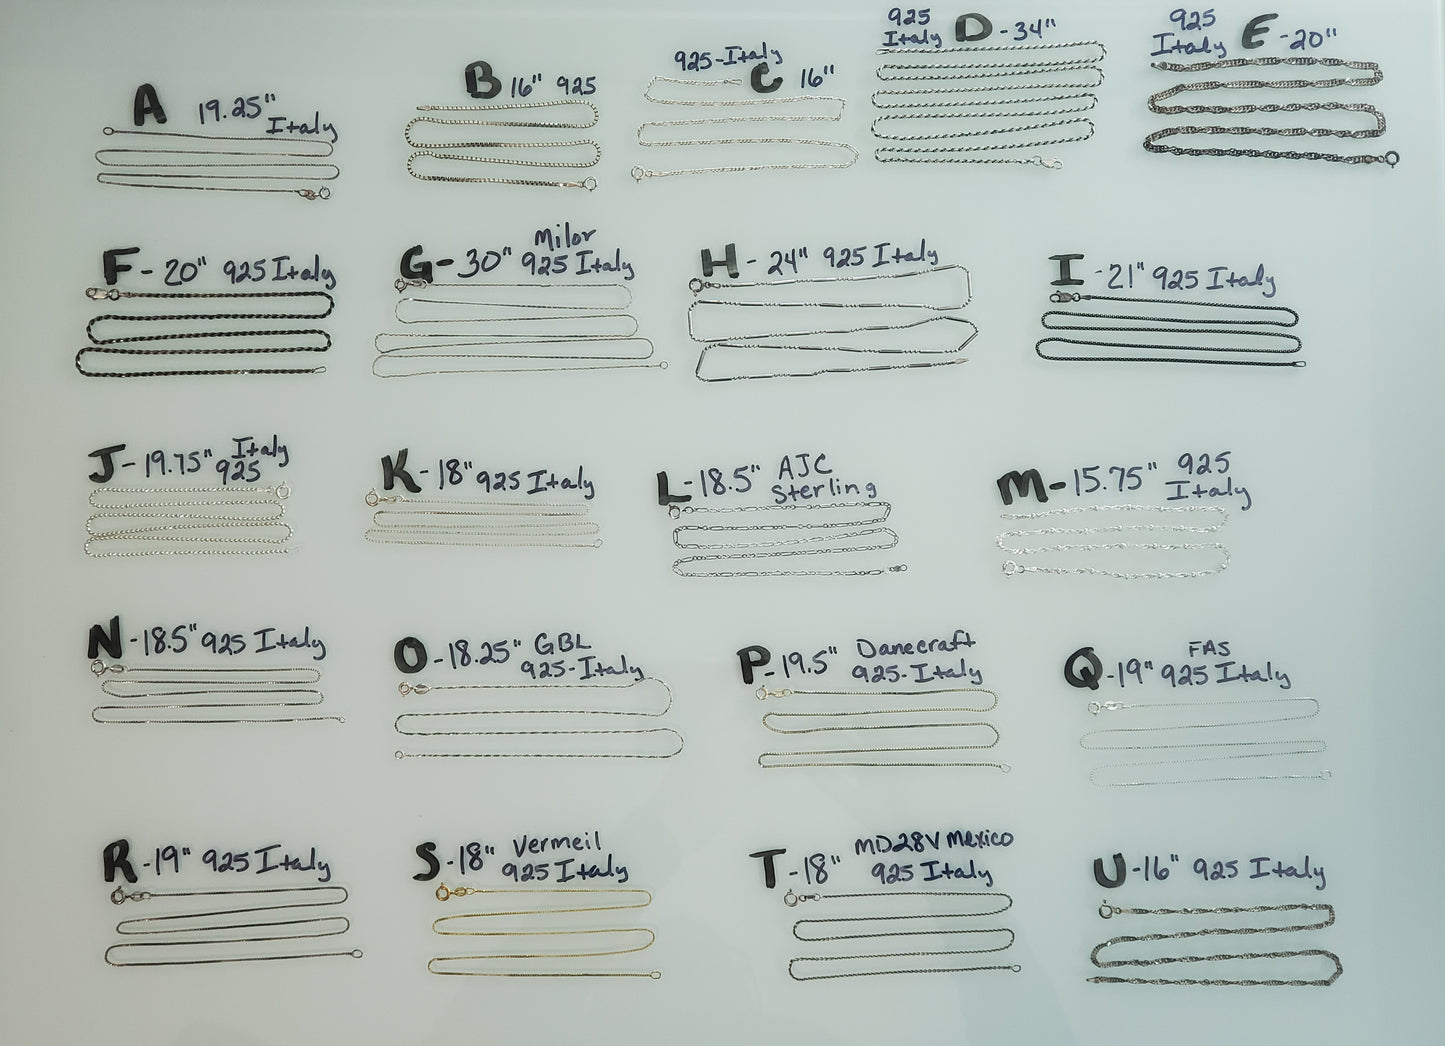 A 19.25"
Italy
B 16" 925
925-Italy
C 16"
925
Italy D - 34"
925
Italy E - 20"
F - 20" 925 Italy
Milor
G - 30" 925 Italy
H - 24" 925 Italy
I - 21" 925 Italy
J - 19.75" Italy
925
K - 18" 925 Italy
L - 18.5" AJC
Sterling
M - 15.75" 925
Italy
N - 18.5" 925 Italy
O - 18.25" GBL
925-Italy
P - 19.5" Danecraft
925-Italy
FAS
Q - 19" 925 Italy
R - 19" 925 Italy
S - 18" Vermeil
925 Italy
T - 18" MD28V Mexico
925 Italy
U - 16" 925 Italy